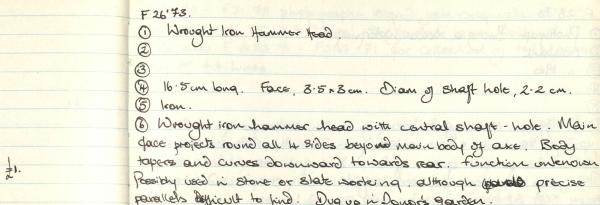 F 26'73.
① Wrought Iron Hammer Head.
②
③
④ 16.5cm long. Face, 3.5 x 3cm. Diam of shaft hole, 2.2 cm.
⑤ Iron.
⑥ Wrought iron hammer head with central shaft-hole. Main
face projects round all 4 sides beyond main body of axe. Body
tapers and curves downward towards rear. Function unknown
1/2 1. Possibly used in stone or slate working, although precise
parallels difficult to find. Dug up in Donor's garden.